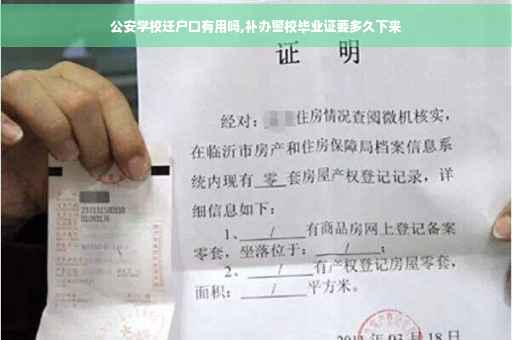 公安学校迁户口有用吗,补办警校毕业证要多久下来
证 明
经对: 住房情况查阅微机核实,
在临沂市房产和住房保障局档案信息系
统内现有 零 套房屋产权登记记录,详
细信息如下:
1、 / 有商品房网上登记备案
零套,坐落位于: / ;
2、 / 有产权登记房屋零套,
面积: / 平方米。
03月18日